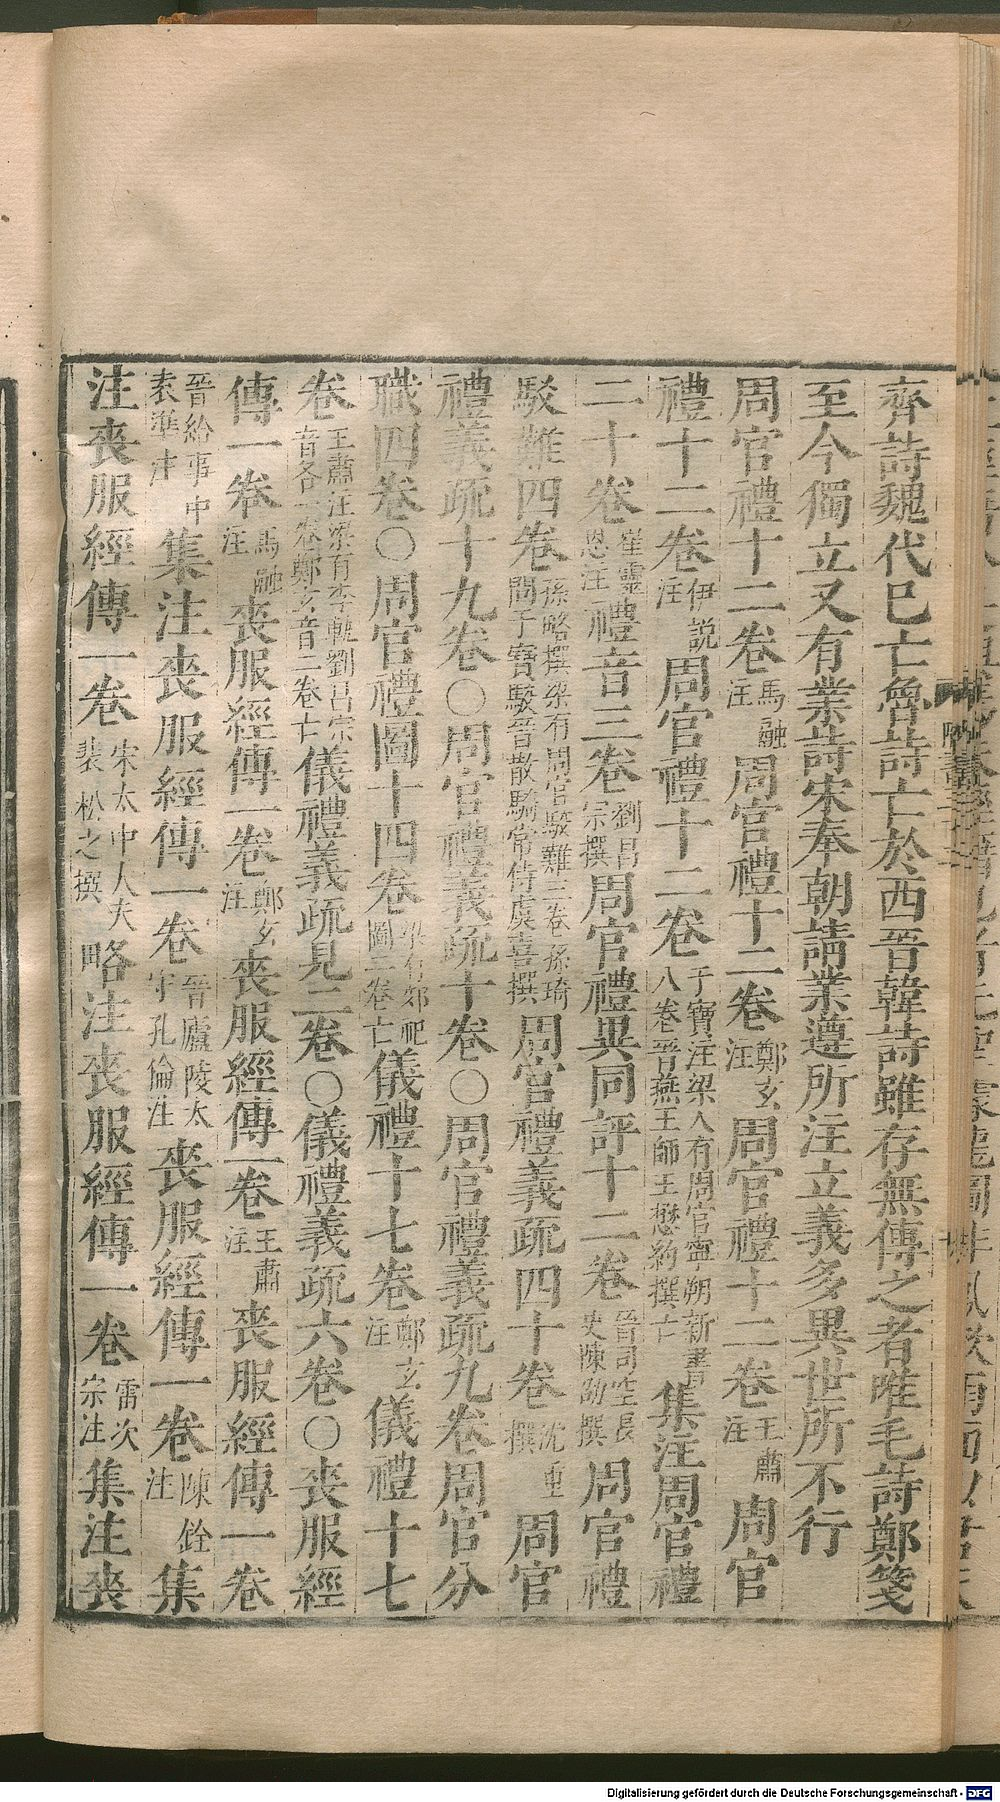 齊詩魏代巳亡魯詩亡於西晉韓詩雖存無傳之者唯毛詩鄭箋
至今獨立又有業詩宋奉朝請業遵所注立義多異世所不行
周官禮十二卷馬融注周官禮十二卷鄭玄注周官禮十二卷王肅注周官
禮十二卷伊説注周官禮十二卷于寶注梁人有周官寧朔新書八卷晉燕王師王懋約撰亡集注周官禮
二十卷崔靈恩注禮音三卷劉昌宗撰周官禮異同評十二卷晉司空長史陳劭撰周官禮
駁難四卷孫略撰梁有周官駁難三卷孫琦問干寶駁晉散騎常侍虞喜撰周官禮義疏四十卷沈重撰周官
禮義疏十九卷〇周官禮義疏十卷〇周官禮義疏九卷周官分
職四卷〇周官禮圖十四卷梁有郊祀圖二卷亡儀禮十七卷鄭玄注儀禮十七
卷王肅注梁有李軌劉昌宗音各一卷鄭玄音二卷亡儀禮義疏見二卷〇儀禮義疏六卷〇喪服經
傳一卷馬融注喪服經傳一卷鄭玄注喪服經傳一卷王肅注喪服經傳一卷
晉給事中袁準注集注喪服經傳一卷晉廬陵太守孔倫注喪服經傳一卷陳銓注集
注喪服經傳一卷宋太中人夫裴松之撰略注喪服經傳一卷雷次宗注集注喪
Digitalisierung gefördert durch die Deutsche Forschungsgemeinschaft - DFG